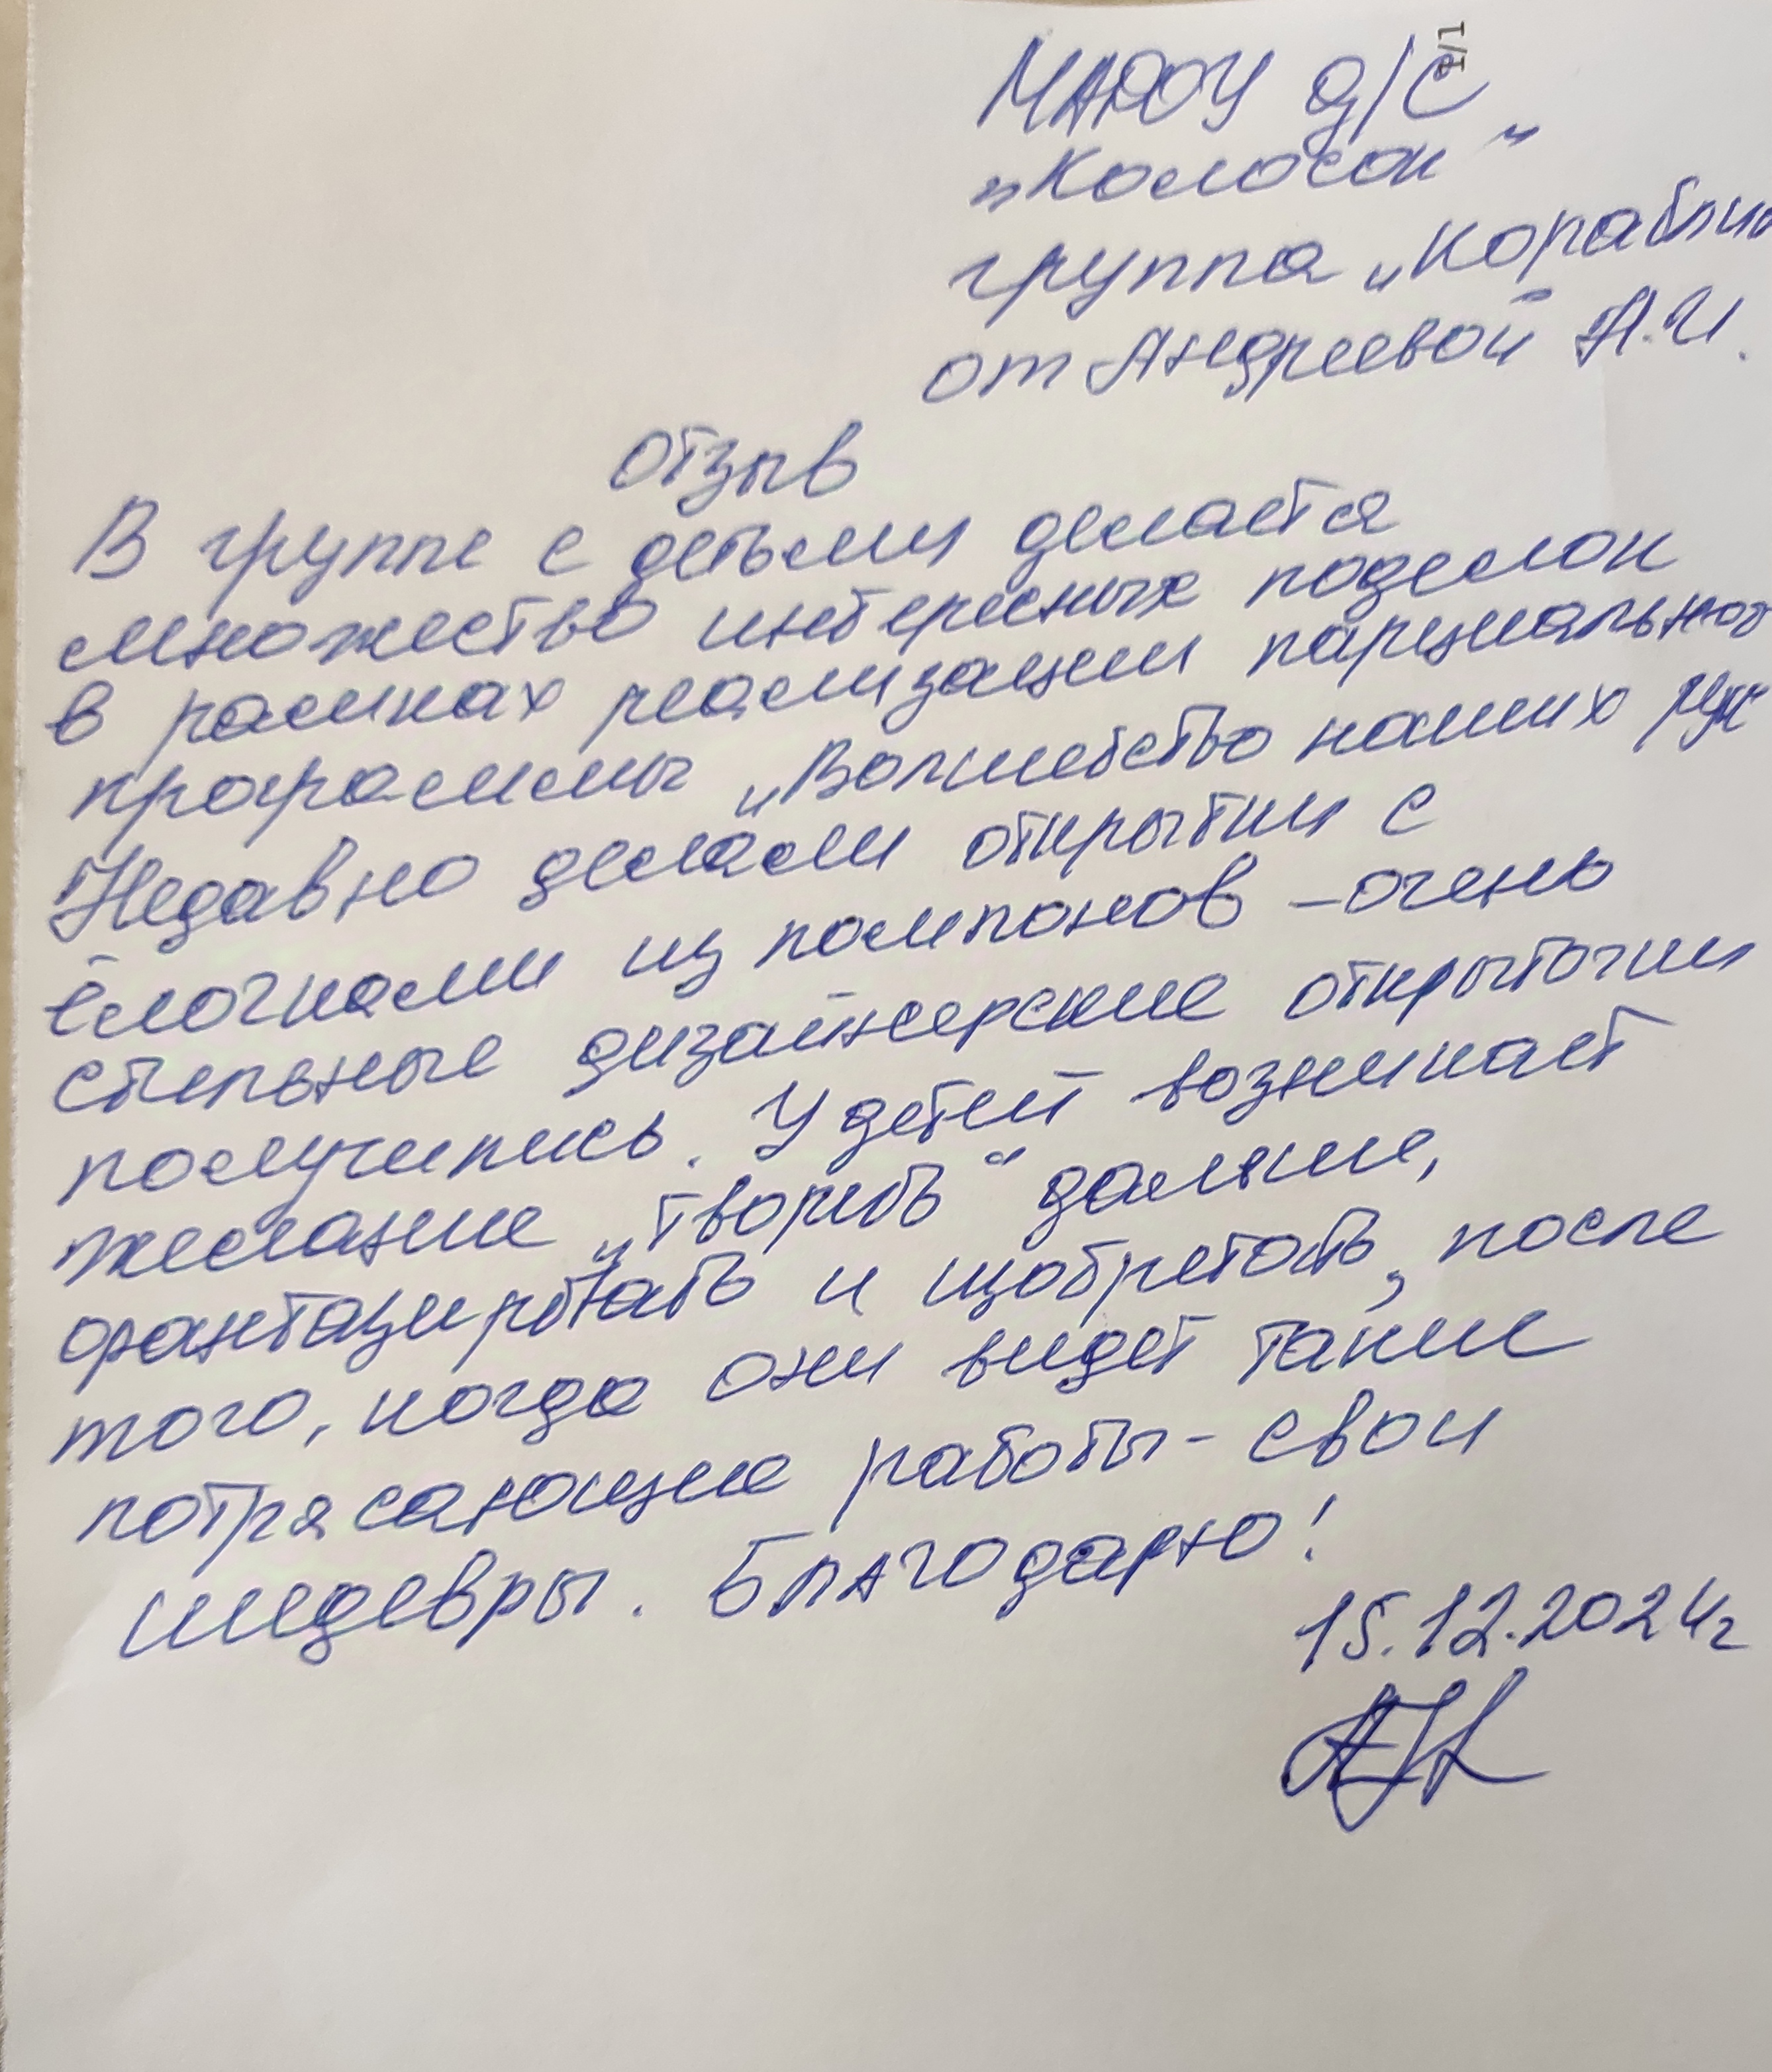 1/1
МАДОУ д/с
„Колосок"
группа „Кораблик
от Андреевой А.И.
отзыв
В группе с детьми делается
множество интересных поделок
в рамках реализации парциальной
программы „Волшебство наших рук
Недавно делали открытки с
ёлочками из помпонов – очень
стильные дизайнерские открыточки
получились. У детей возникает
желание „творить" дальше,
фантазировать и изобретать, после
того, когда они видет такие
потрясающие работы - свои
шедевры. Благодарю!
15.12.2024г